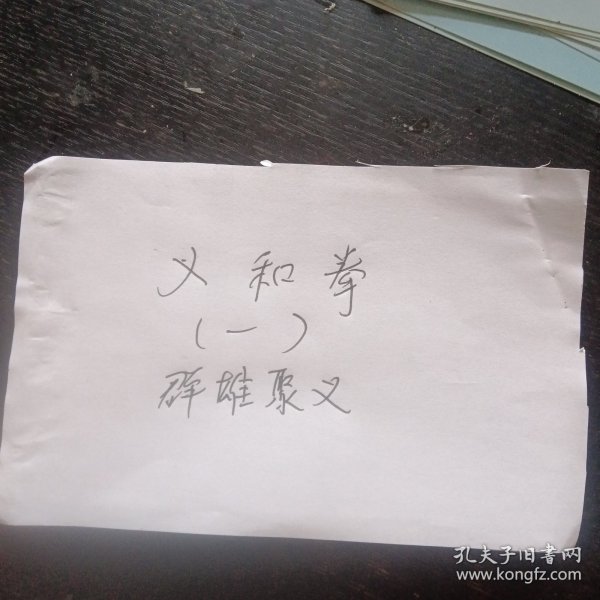 义和拳
（一）
群雄聚义
孔夫子旧書网
www.kongfz.com